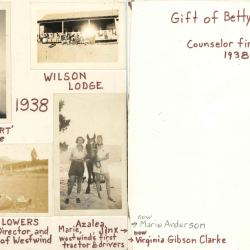 Gift of Betty
Counselor fir
1938
WILSON
LODGE
1938
ART'
e
LOWERS
Director, and
of Westwind
Azalea,
Marie, Jinx →
Westwind's first
tractor & drivers
now
→ Marie Anderson
now
→ Virginia Gibson Clarke